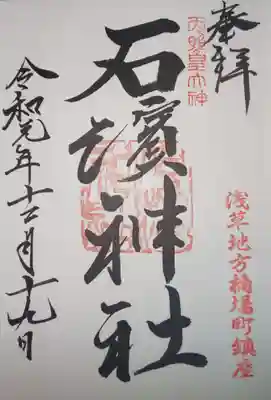 奉拝
天照皇大神
石濱神社
浅草地方橋場町鎮座
令和元年十二月十九日